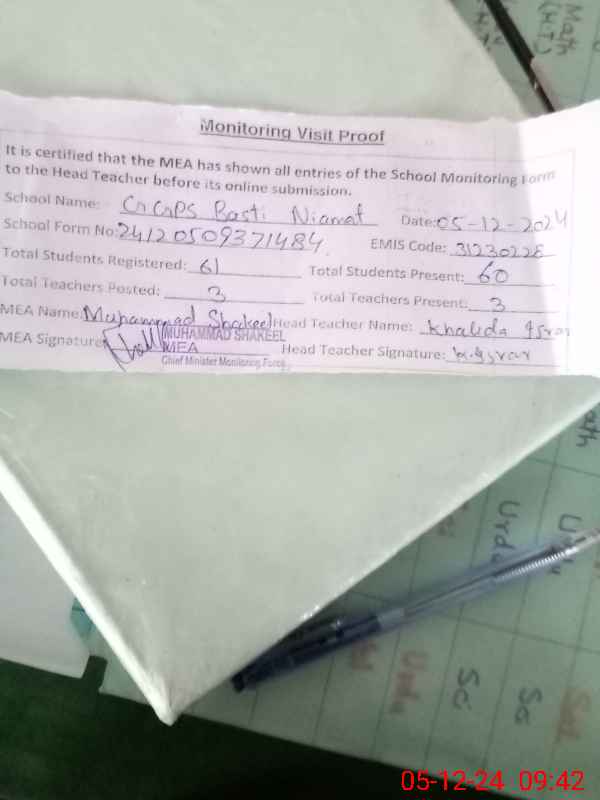 Math
(H.T)
Monitoring Visit Proof
It is certified that the MEA has shown all entries of the School Monitoring Form
to the Head Teacher before its online submission.
School Name: GGPS Basti Niamat Date: 05-12-2024
School Form No: 24120509371484 EMIS Code: 31230228
Total Students Registered: 61 Total Students Present: 60
Total Teachers Posted: 3 Total Teachers Present: 3
MEA Name: Muhammad Shakeel Head Teacher Name: Khalida Israr
MEA Signature: Head Teacher Signature: K.Israr
MUHAMMAD SHAKEEL
MEA
Chief Minister Monitoring Force
Urdu
Urdu
Sc
Sc
05-12-24 09:42